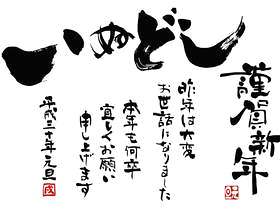 いぬどし
謹賀新年
昨年は大変
お世話になりました
本年も何卒
宜しくお願い
申し上げます
平成三十年元旦